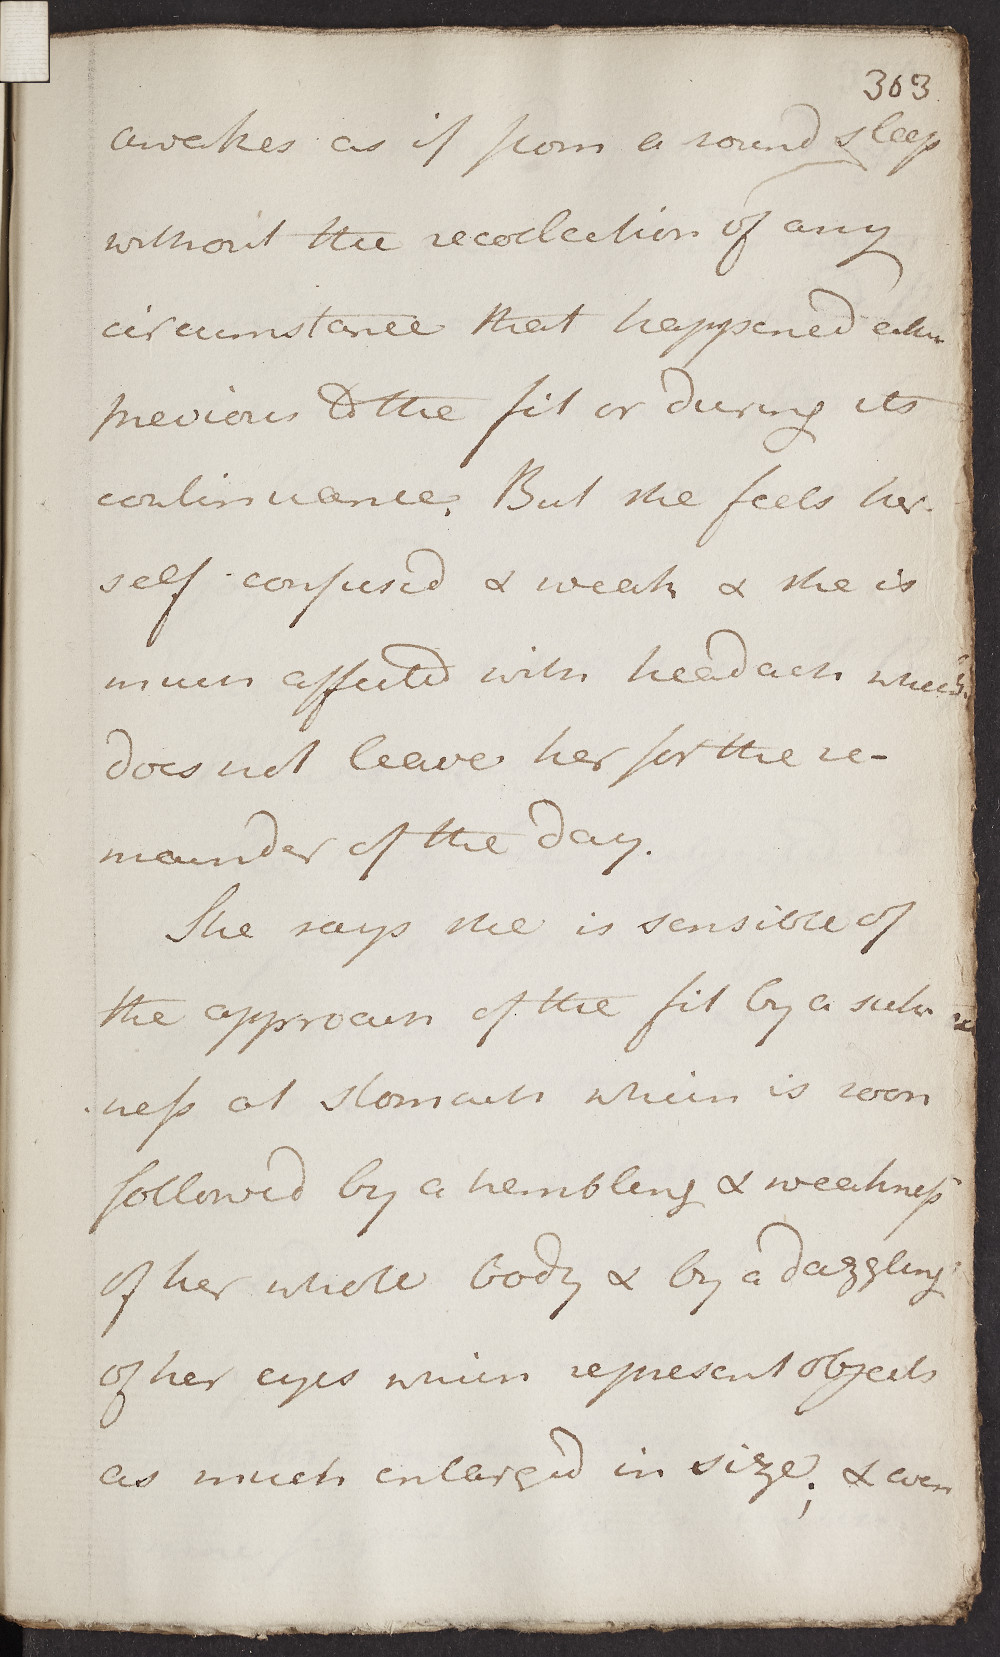 303
awakes as if from a sound sleep
without the recollection of any
circumstance that happened either
previous to the fit or during its
continuance. But she feels her-
self confused & weak & she is
much affected with headach which
does not leave her for the re-
mainder of the day.
She says she is sensible of
the approach of the fit by a sick
ness at stomach which is soon
followed by a trembling & weakness
of her whole body & by a dazzling
of her eyes which represent objects
as much enlarged in size; & even